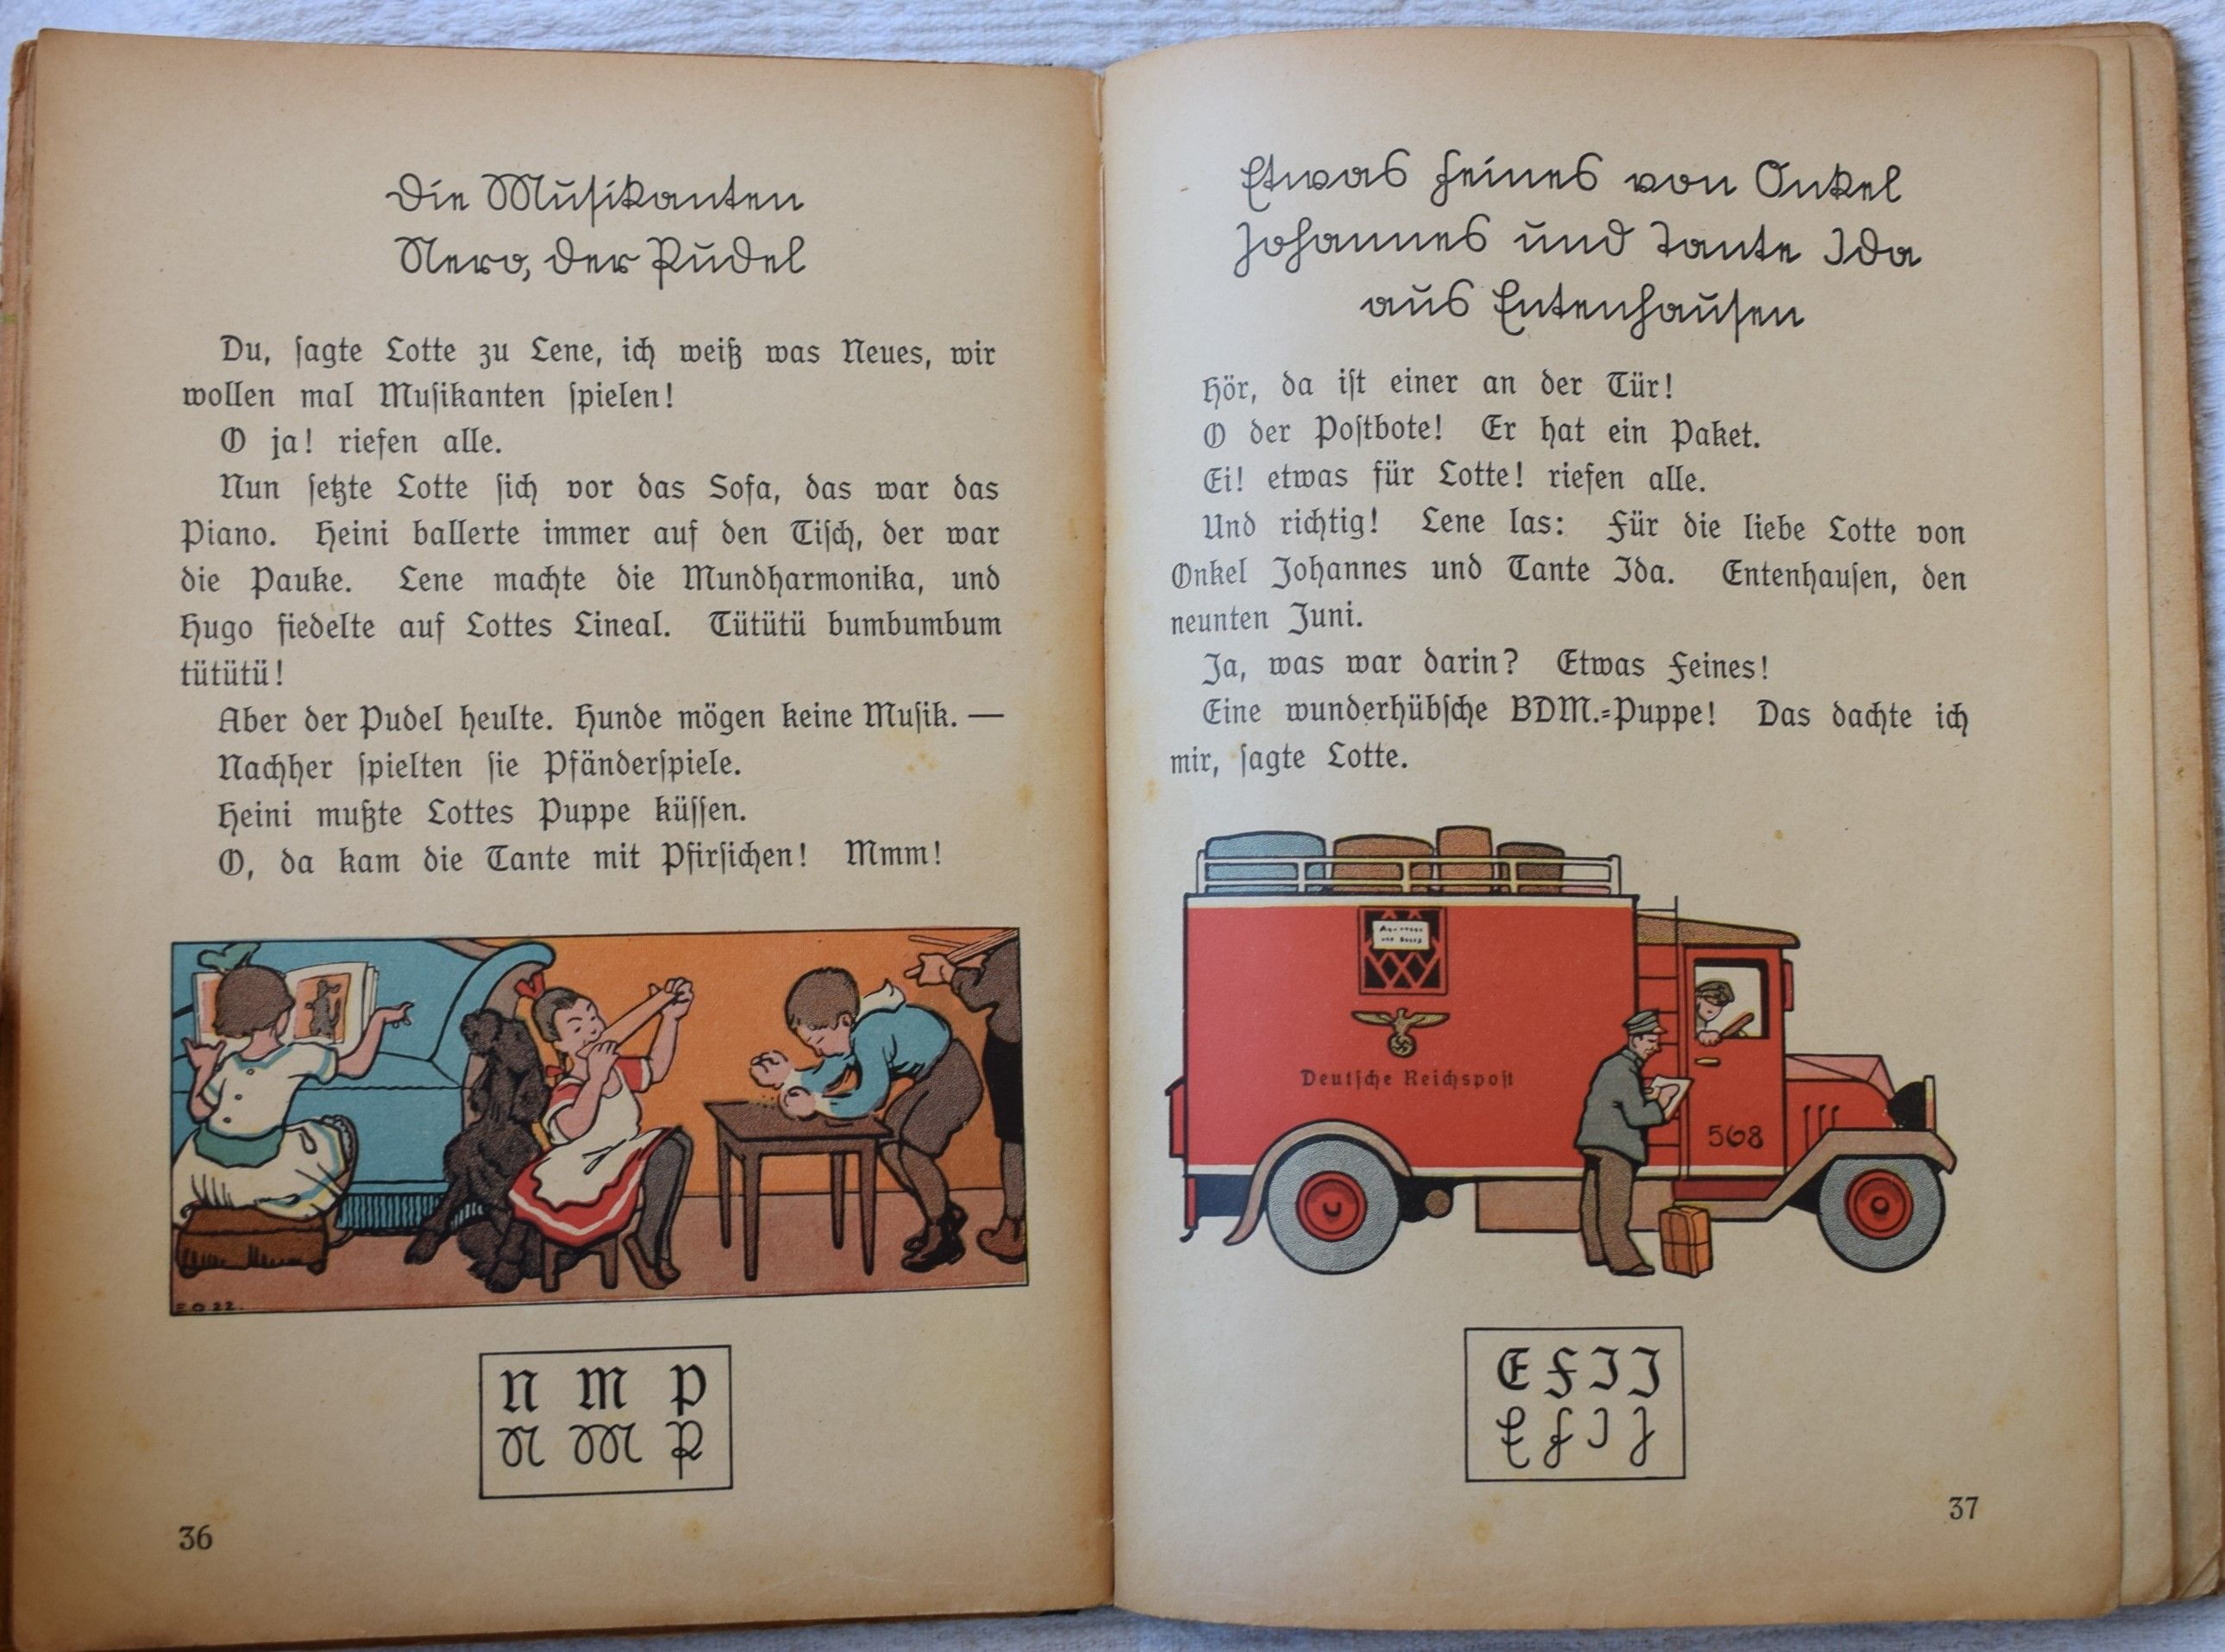 Die Musikanten
Nero, der Pudel
Du, ſagte Lotte zu Lene, ich weiß was Neues, wir
wollen mal Muſikanten ſpielen!
O ja! riefen alle.
Nun ſetzte Lotte ſich vor das Sofa, das war das
Piano. Heini ballerte immer auf den Tiſch, der war
die Pauke. Lene machte die Mundharmonika, und
Hugo fiedelte auf Lottes Lineal. Tütütü bumbumbum
tütütü!
Aber der Pudel heulte. Hunde mögen keine Muſik. —
Nachher ſpielten ſie Pfänderſpiele.
Heini mußte Lottes Puppe küſſen.
O, da kam die Tante mit Pfirſichen! Mmm!
E O 22.
N M P
N M P
36
Etwas Feines von Onkel
Johannes und Tante Ida
aus Entenhauſen
Hör, da iſt einer an der Tür!
O der Poſtbote! Er hat ein Paket.
Ei! etwas für Lotte! riefen alle.
Und richtig! Lene las: Für die liebe Lotte von
Onkel Johannes und Tante Ida. Entenhauſen, den
neunten Juni.
Ja, was war darin? Etwas Feines!
Eine wunderhübſche BDM.=Puppe! Das dachte ich
mir, ſagte Lotte.
Deutſche Reichspoſt
568
E F I J
E F I J
37